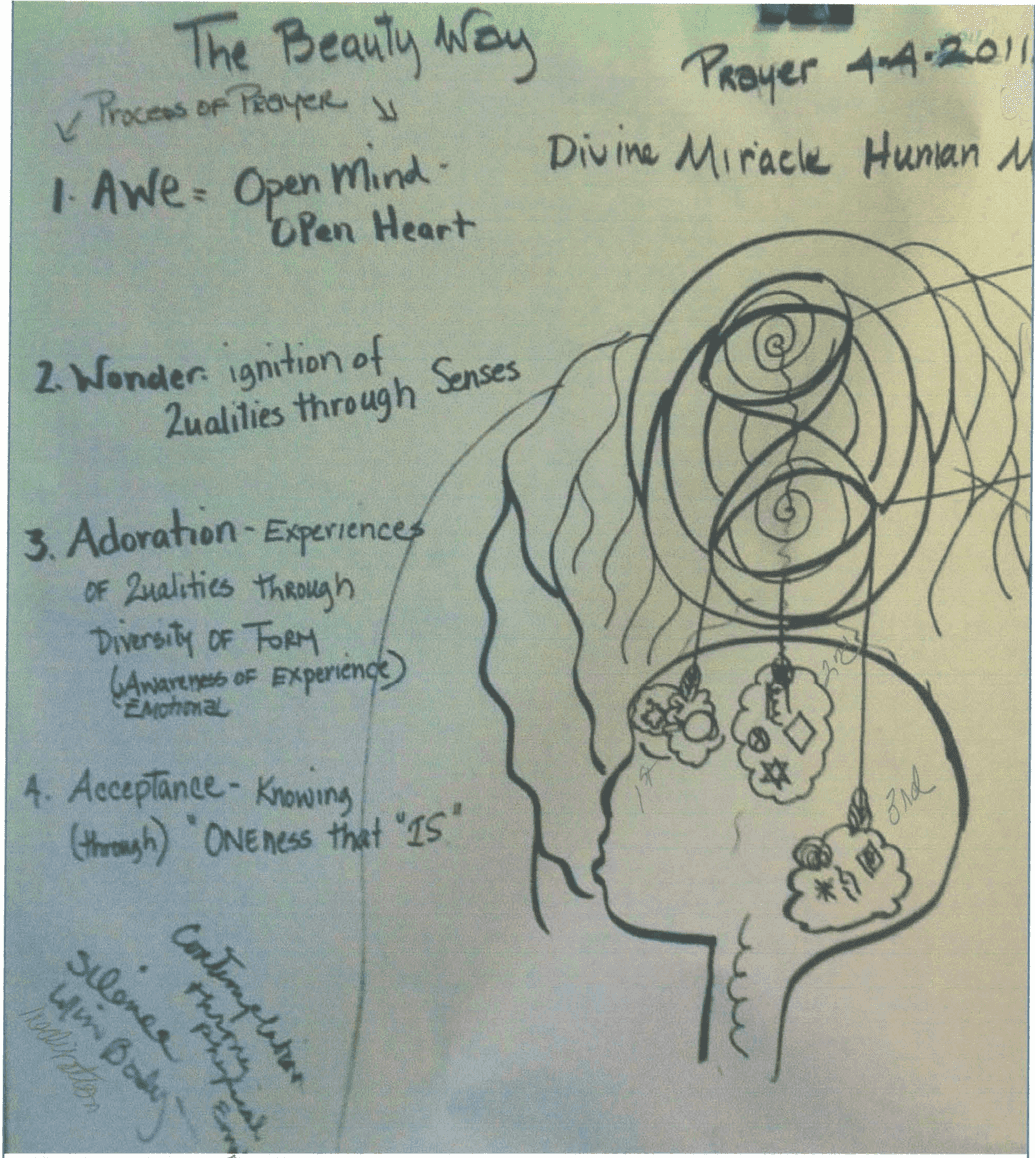 The Beauty Way
Process of Prayer
1. AWE = Open Mind -
Open Heart
2. Wonder- ignition of
Qualities through Senses
3. Adoration - Experiences
of Qualities through
Diversity of Form
(Awareness of Experience)
Emotional
4. Acceptance - Knowing
(through) "ONEness that "IS"
Silence
w/in Body -
Contemplation
through
physical
Prayer 4-4-2011
Divine Miracle Human M
1st
2nd
3rd